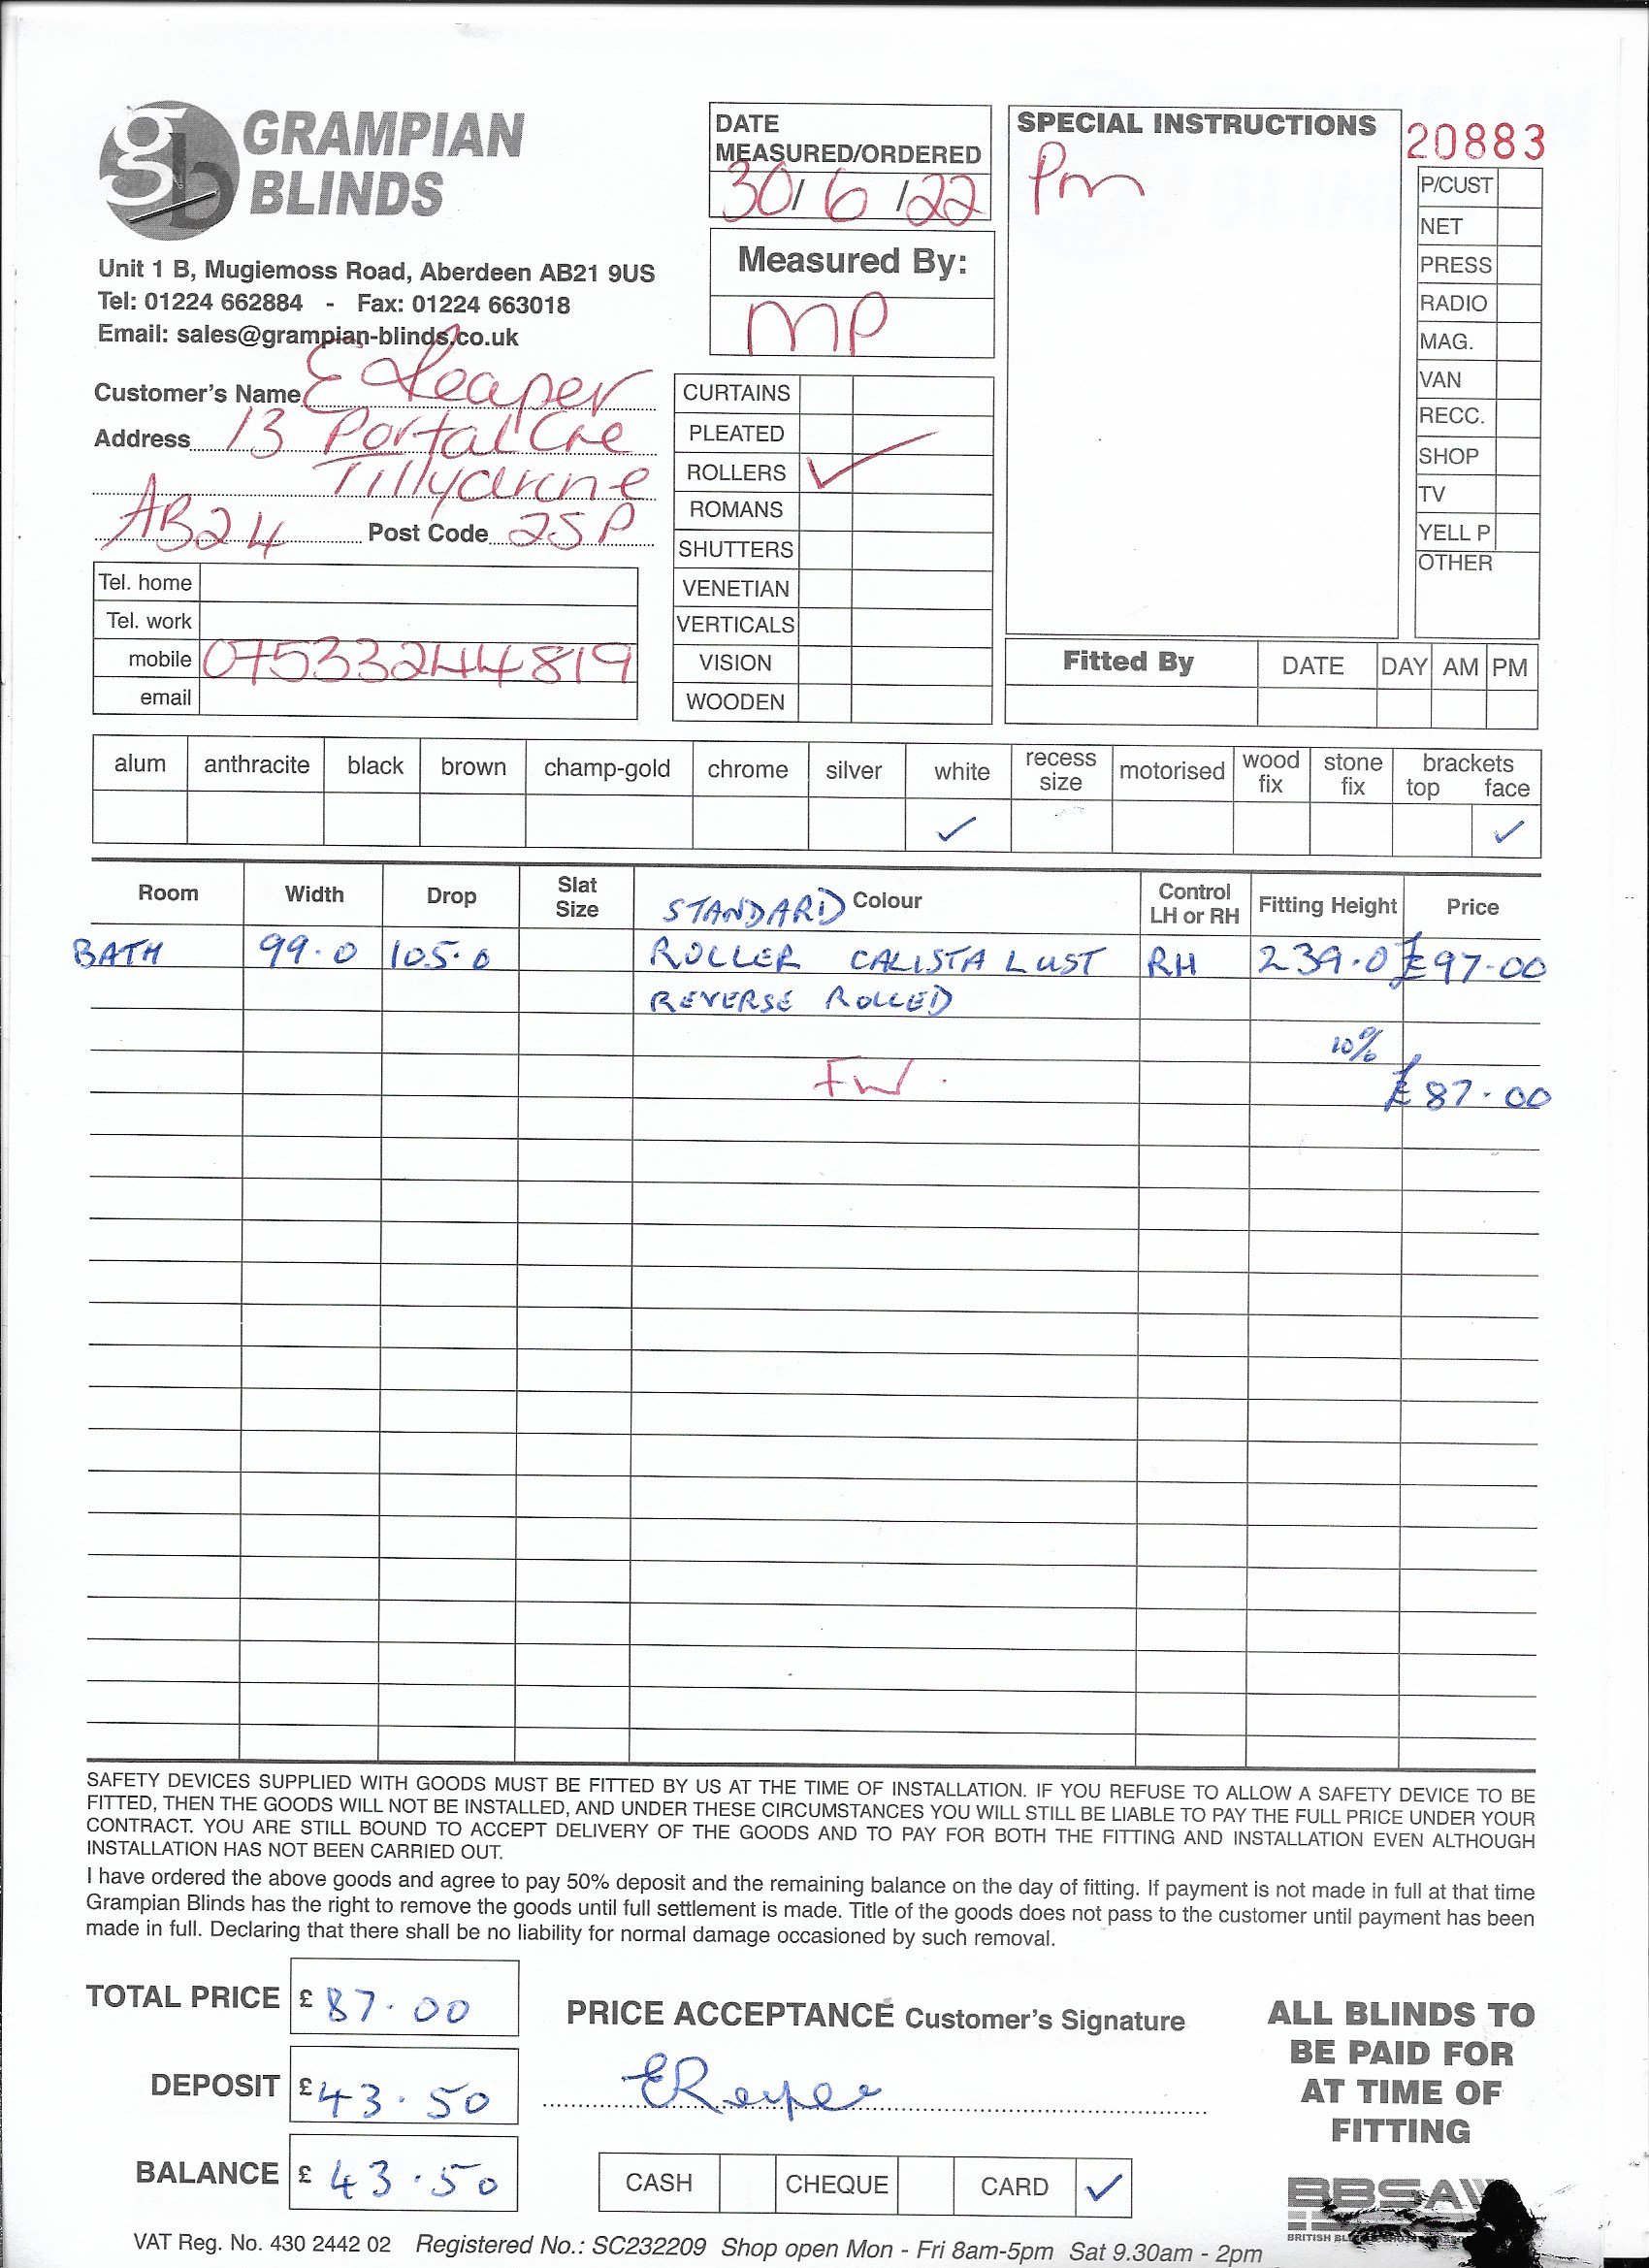 GRAMPIAN
BLINDS
Unit 1 B, Mugiemoss Road, Aberdeen AB21 9US
Tel: 01224 662884 - Fax: 01224 663018
Email: sales@grampian-blinds.co.uk
DATE
MEASURED/ORDERED
30/ 6 /22
Measured By:
MP
SPECIAL INSTRUCTIONS
Pm
20883
P/CUST
NET
PRESS
RADIO
MAG.
VAN
RECC.
SHOP
TV
YELL P
OTHER
Customer's Name E Leaper
Address 13 Portal Cre
Tillydrone
AB24 Post Code 2SP
Tel. home
Tel. work
mobile 07533244819
email
CURTAINS
PLEATED
ROLLERS ✓
ROMANS
SHUTTERS
VENETIAN
VERTICALS
VISION
WOODEN
Fitted By DATE DAY AM PM
alum anthracite black brown champ-gold chrome silver white recess size motorised wood fix stone fix brackets top face
✓ ✓
Room Width Drop Slat Size STANDARD Colour Control LH or RH Fitting Height Price
BATH 99.0 105.0 ROLLER CALISTA LUST RH 239.0 £97.00
REVERSE ROLLED
10%
FW. £87.00
SAFETY DEVICES SUPPLIED WITH GOODS MUST BE FITTED BY US AT THE TIME OF INSTALLATION. IF YOU REFUSE TO ALLOW A SAFETY DEVICE TO BE
FITTED, THEN THE GOODS WILL NOT BE INSTALLED, AND UNDER THESE CIRCUMSTANCES YOU WILL STILL BE LIABLE TO PAY THE FULL PRICE UNDER YOUR
CONTRACT. YOU ARE STILL BOUND TO ACCEPT DELIVERY OF THE GOODS AND TO PAY FOR BOTH THE FITTING AND INSTALLATION EVEN ALTHOUGH
INSTALLATION HAS NOT BEEN CARRIED OUT.
I have ordered the above goods and agree to pay 50% deposit and the remaining balance on the day of fitting. If payment is not made in full at that time
Grampian Blinds has the right to remove the goods until full settlement is made. Title of the goods does not pass to the customer until payment has been
made in full. Declaring that there shall be no liability for normal damage occasioned by such removal.
TOTAL PRICE £ 87.00
DEPOSIT £43.50
BALANCE £ 43.50
PRICE ACCEPTANCE Customer's Signature
CASH CHEQUE CARD ✓
ALL BLINDS TO
BE PAID FOR
AT TIME OF
FITTING
BBSA
BRITISH
VAT Reg. No. 430 2442 02 Registered No.: SC232209 Shop open Mon - Fri 8am-5pm Sat 9.30am - 2pm